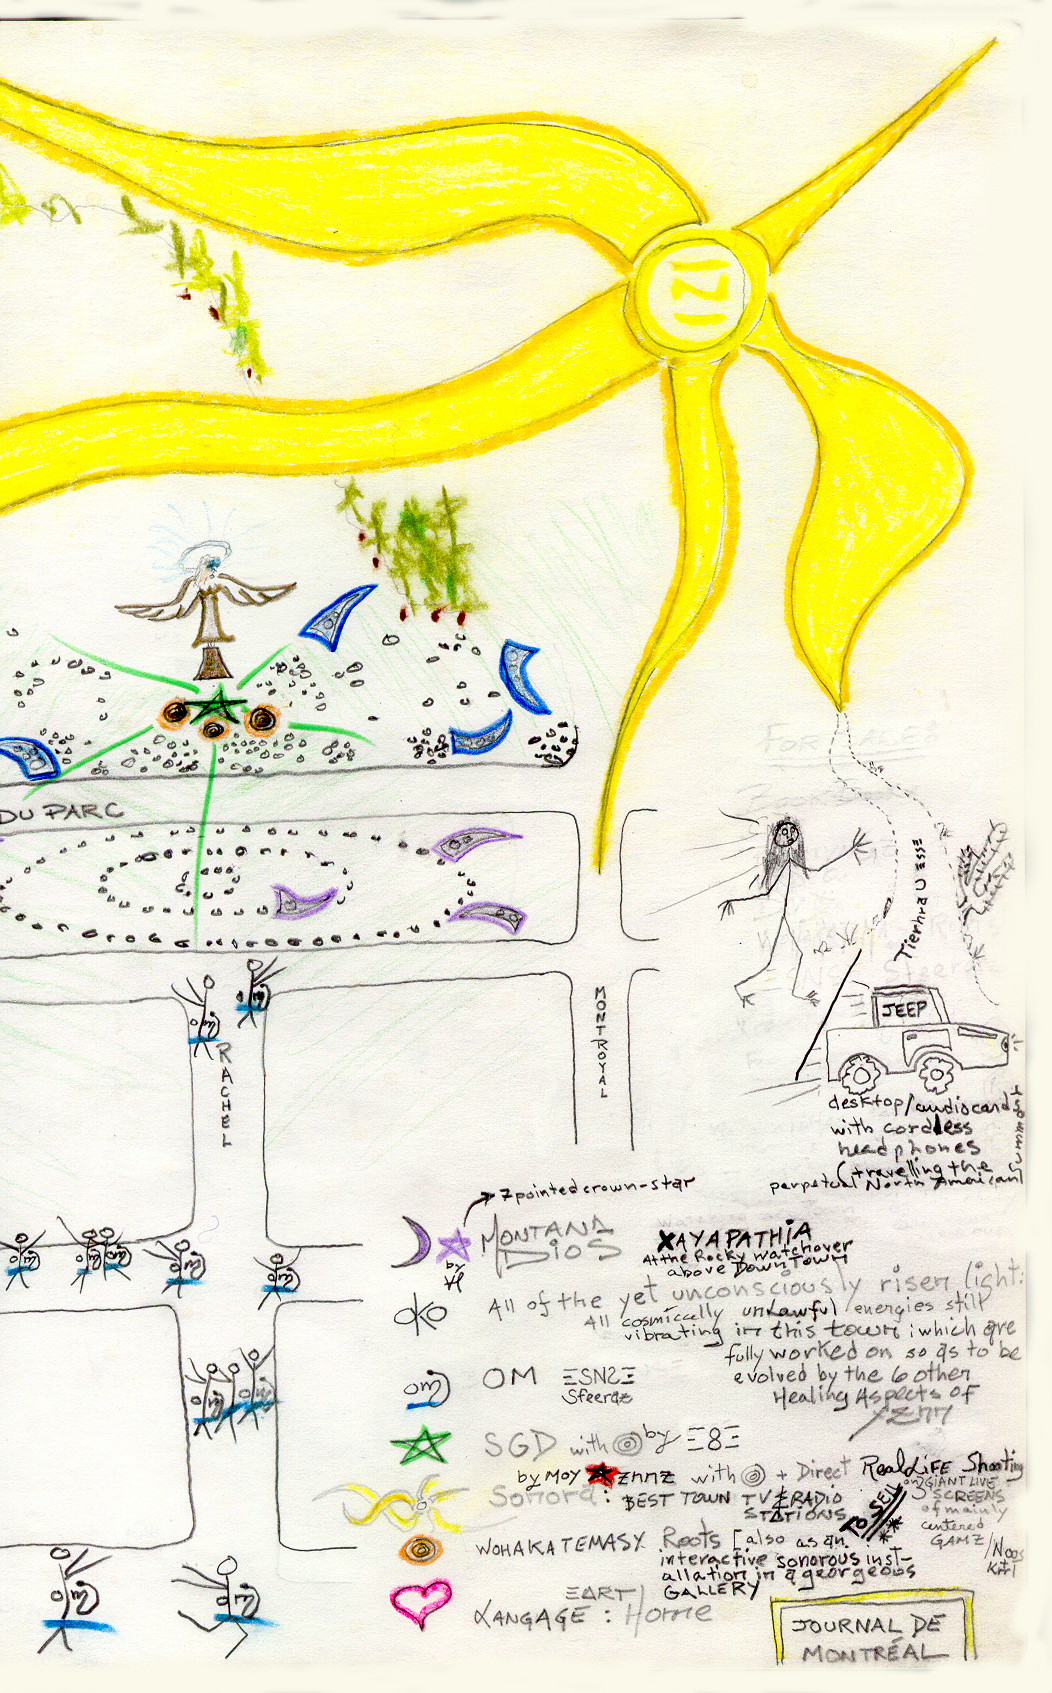 DU PARC
Tierhra U ESSE
MONTROYAL
JEEP
RACHEL
desktop/audiocands
with cordless
headphones
(travelling the
perpetual North American
7 pointed crown-star
MONTANA
DIOS
by
XAYAPATHiA
At the Rocky watchover
above DownTown
OKO
All of the yet unconsciously risen light:
All cosmically unLawful energies still
vibrating in this town: which are
fully worked on so as to be
evolved by the 6 other
Healing Aspects of
OM
OM ΞSN2Ξ
Sfeeraz
SGD with by Ξ8Ξ
by Moy znnz with + Direct RealLiFE Shooting
Sonora: BEST TOWN TV & RADIO
STATIONS
TO SELL
on GIANT LIVE
3 SCREENS
of mainly
centered
GAMZ
WOHAKATEMASY Roots [also as an
interactive sonorous inst-
allation in a georgeous
GALLERY
EART/
LANGAGE : Home
JOURNAL DE
MONTRÉAL